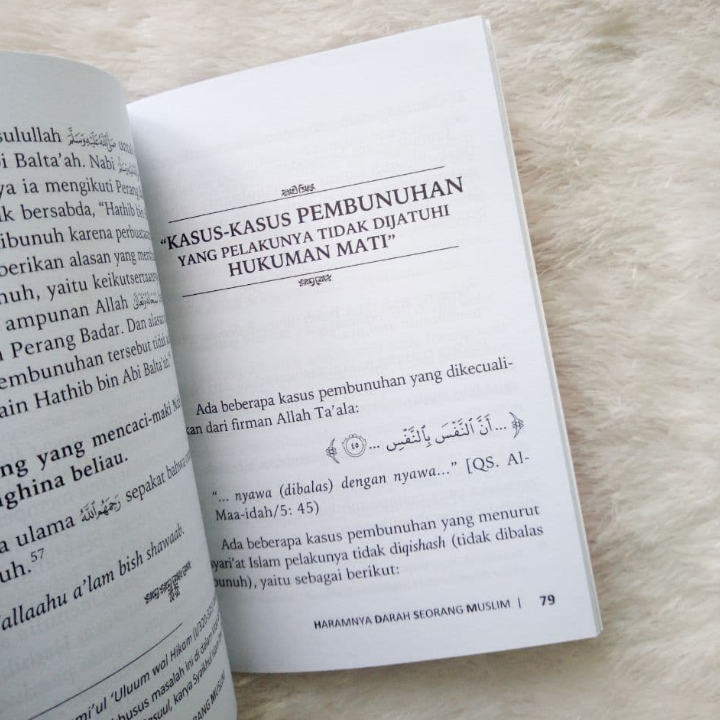 sulullah ﷺ
i Balta'ah. Nabi ﷺ
ya ia mengikuti Perang
ik bersabda, "Hathib bin
ibunuh karena perbuatan
berikan alasan yang
nuh, yaitu keikutsertaan
ampunan Allah
Perang Badar. Dan alasan
embunuhan tersebut tidak
ain Hathib bin Abi Balta'ah."
ng yang mencaci-maki
ghina beliau.
a ulama رَحِمَهُمُ اللهُ sepakat bahwa
uh.57
allaahu a'lam bish shawaab.
mi'ul 'Uluum wal Hikam
husus masalah ini di dalam
karya
"KASUS-KASUS PEMBUNUHAN
YANG PELAKUNYA TIDAK DIJATUHI
HUKUMAN MATI"
Ada beberapa kasus pembunuhan yang dikecuali-
kan dari firman Allah Ta'ala:
﴿ ... أَنَّ النَّفْسَ بِالنَّفْسِ ... ٤٥ ﴾
"... nyawa (dibalas) dengan nyawa..." [QS. Al-
Maa-idah/5: 45)
Ada beberapa kasus pembunuhan yang menurut
syari'at Islam pelakunya tidak diqishash (tidak dibalas
bunuh), yaitu sebagai berikut:
HARAMNYA DARAH SEORANG MUSLIM | 79